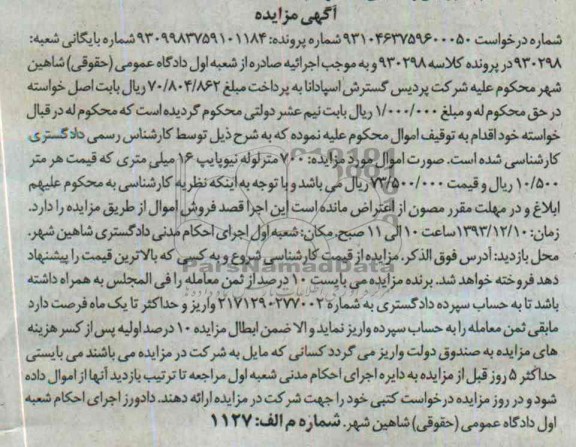 آگهی مزایده
شماره درخواست ۹۳۱۰۴۶۳۷۵۹۶۰۰۰۵۰ شماره پرونده: ۹۳۰۹۹۸۳۷۵۹۱۰۱۱۸۴ شماره بایگانی شعبه:
۹۳۰۲۹۸ در پرونده کلاسه ۹۳۰۲۹۸ و به موجب اجرائیه صادره از شعبه اول دادگاه عمومی (حقوقی) شاهین
شهر محکوم علیه شرکت پردیس گسترش اسپادانا به پرداخت مبلغ ۷۰/۸۰۴/۸۶۲ ریال بابت اصل خواسته
در حق محکوم له و مبلغ ۱/۰۰۰/۰۰۰ بابت نیم عشر دولتی محکوم گردیده است که محکوم له در قبال
خواسته خود اقدام به توقیف اموال محکوم علیه نموده که به شرح ذیل توسط کارشناس رسمی دادگستری
کارشناسی شده است. صورت اموال مورد مزایده: ۷۰۰۰ متر لوله نیوپایپ ۱۶ میلی متری که قیمت هر متر
۱۰/۵۰۰ ریال و قیمت ۷۳/۵۰۰/۰۰۰ ریال می باشد و با توجه به اینکه نظریه کارشناسی به محکوم علیهم
ابلاغ و در مهلت مقرر مصون از اعتراض مانده است این اجرا قصد فروش اموال از طریق مزایده را دارد.
زمان: ۱۳۹۳/۱۲/۱۰ ساعت ۱۰ الی ۱۱ صبح. مکان: شعبه اول اجرای احکام مدنی دادگستری شاهین شهر.
محل بازدید: آدرس فوق الذکر. مزایده از قیمت کارشناسی شروع و به کسی که بالاترین قیمت را پیشنهاد
دهد فروخته خواهد شد. برنده مزایده می بایست ۱۰ درصد از ثمن معامله را فی المجلس به همراه داشته
باشد تا به حساب سپرده دادگستری به شماره ۲۱۷۱۲۹۰۲۷۷۰۰۲ واریز و حداکثر تا یک ماه فرصت دارد
مابقی ثمن معامله را به حساب سپرده واریز نماید و الا ضمن ابطال مزایده ۱۰ درصد اولیه پس از کسر هزینه
های مزایده به صندوق دولت واریز می گردد کسانی که مایل به شرکت در مزایده می باشند می بایستی
حداکثر ۵ روز قبل از مزایده به دایره اجرای احکام مدنی شعبه اول مراجعه تا ترتیب بازدید آنها از اموال داده
شود و در روز مزایده درخواست کتبی خود را جهت شرکت در مزایده ارائه دهند. دادورز اجرای احکام شعبه
اول دادگاه عمومی (حقوقی) شاهین شهر. شماره م الف: ۱۱۲۷
ParsNamadData